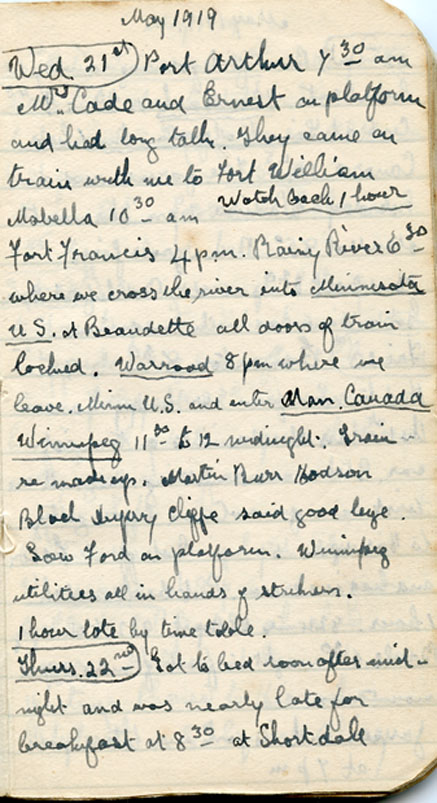 May 1919
Wed. 21st Port Arthur 7 30 am
Mrs Cade and Ernest on platform
and had long talk. They came on
train with me to Fort William
Watch back 1 hour
Mabella 10 30 am
Fort Francis 4 pm. Rainy River 6 30
where we cross the river into Minnesota
U S. at Beaudette all doors of train
locked. Warroad 8 pm where we
leave. Minn U.S. and enter Man. Canada
Winnipeg 11 30 to 12 midnight. Train
re made up. Martin Burr Hodson
Black Cliffe said good bye.
Saw Ford on platform. Winnipeg
utilities all in hands of strikers.
1 hour late by time table.
Thurs. 22nd Got to bed soon after mid-
night and was nearly late for
breakfast at 8 30 at Shortdale